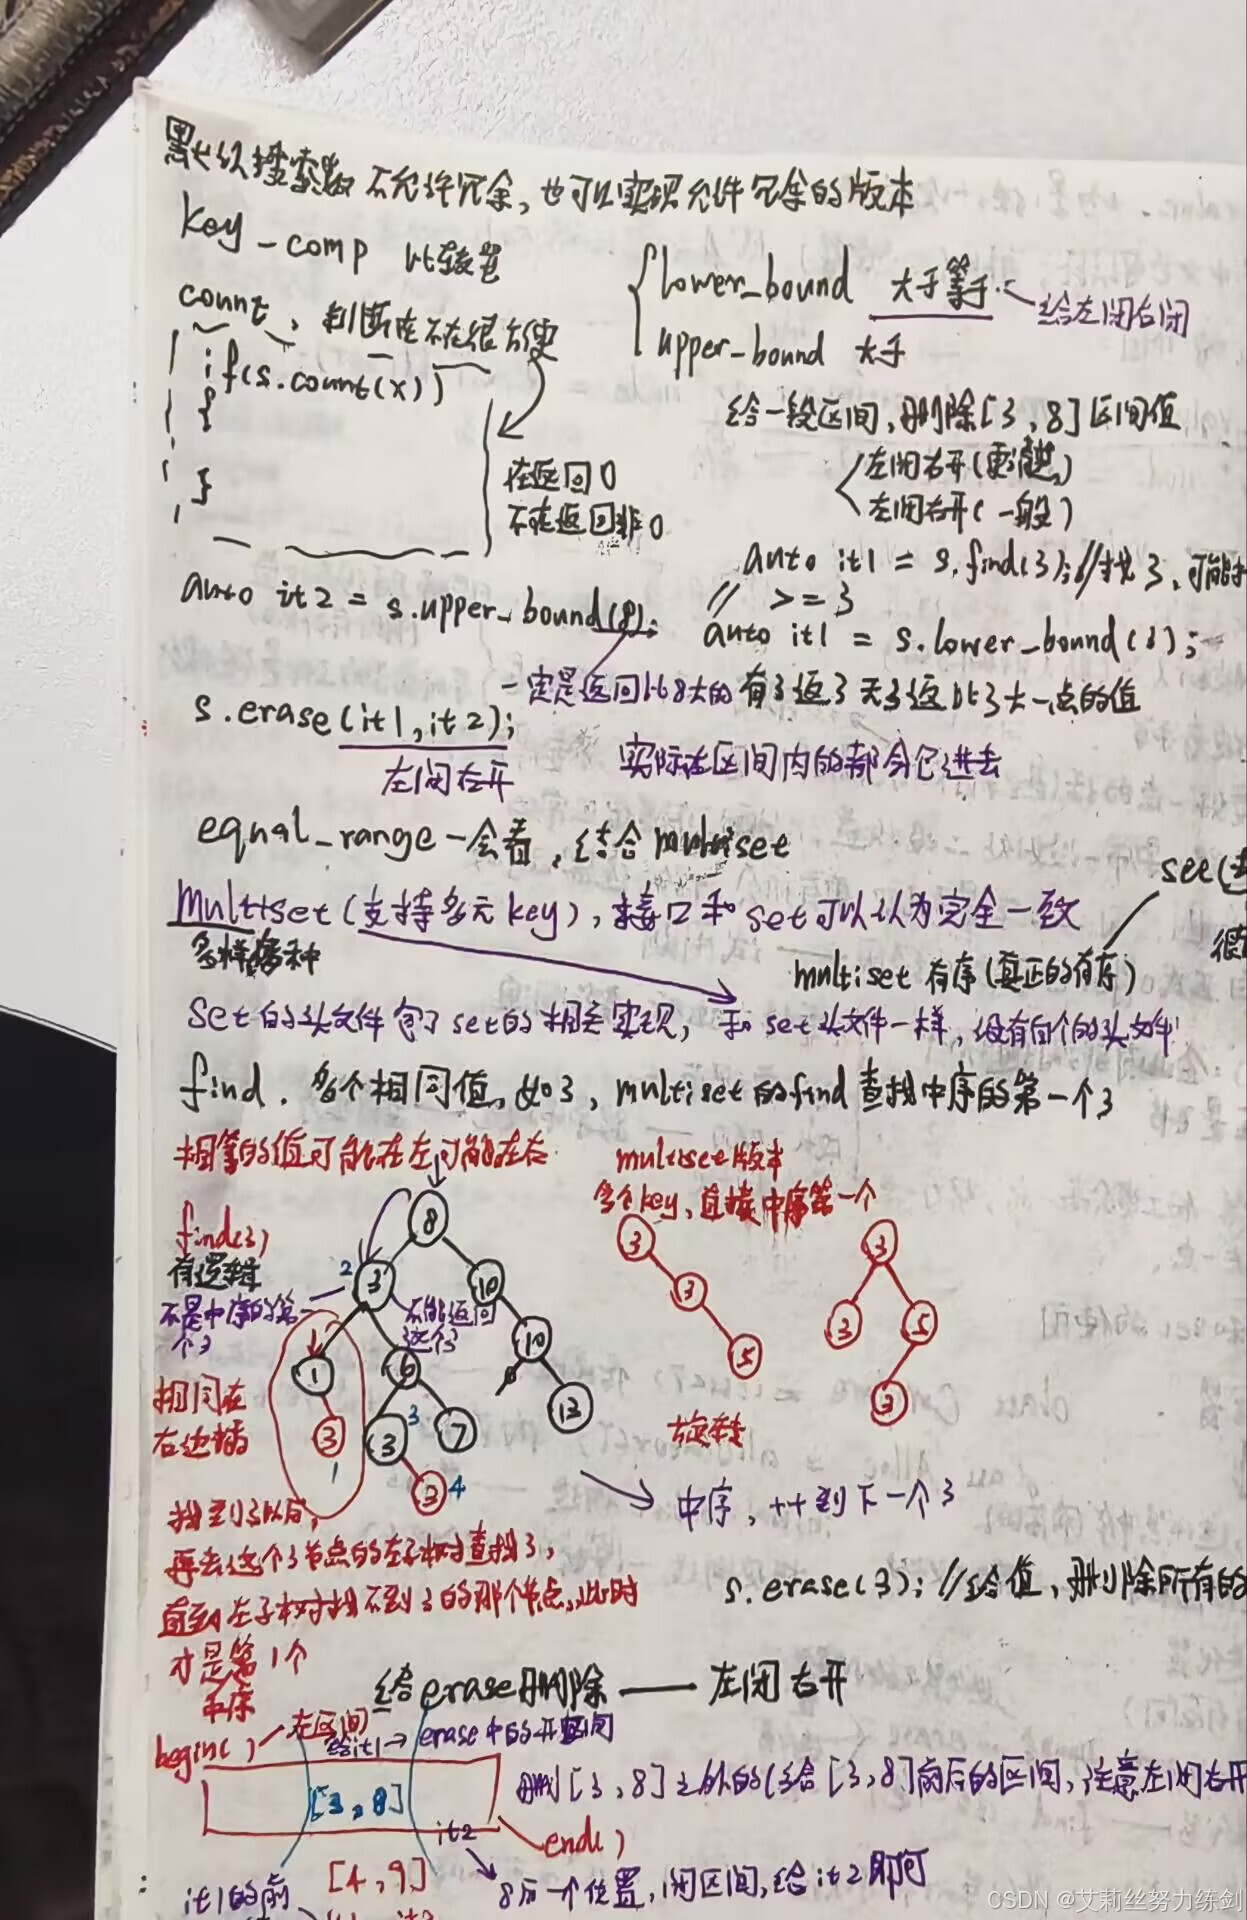 默认搜索树不允许冗余,也可以实现允许冗余的版本
key_comp 比较器
lower_bound 大于等于
给左闭右闭
upper_bound 大于
count,判断在不在很方便
if(s.count(x))
{
}
在返回0
不在返回非0
给一段区间,删除[3,8]区间值
左闭右开(
左闭右开(一般)
auto it1 = s.find(3);//找3,可能
// >=3
auto it1 = s.lower_bound( );
auto it2 = s.upper_bound(8);
一定是返回比8大的
有3返3 无3返比3大一点的值
s.erase(it1,it2);
左闭右开
实际在区间内的都会包进去
equal_range一会看,结合multiset
multiset(支持多元key),接口和set可以认为完全一致
多样多种
set(
multiset有序(真正的有序)
set的头文件包了set的相关实现,和set头文件一样,没有自个的头文件
find.多个相同值,如3,multiset的find查找中序的第一个3
相等的值可能在左可能在右
multiset版本
多个key,直接中序第一个
find(3)
有逻辑
不是中序的第一
个3
不能返回
这个3
8
2
3
10
1
6
10
3
1
3
3
7
12
3
4
3
3
5
3
3
5
3
旋转
相同在
右边插
中序,++到下一个3
找到3以后,
再去这个3节点的左子树查找3,
直到左子树找不到3的那个节点,此时
才是第1个
中序
s.erase(3);//给值,删除所有的
给erase删除——左闭右开
begin()
左区间
给it1→erase中的开区间
[3,8]
删[3,8]之外的(给[3,8]前后的区间,注意左闭右开
it2
end()
[4,9]
8后一个位置,闭区间,给it2即可
it1的前
CSDN @艾莉丝努力练剑